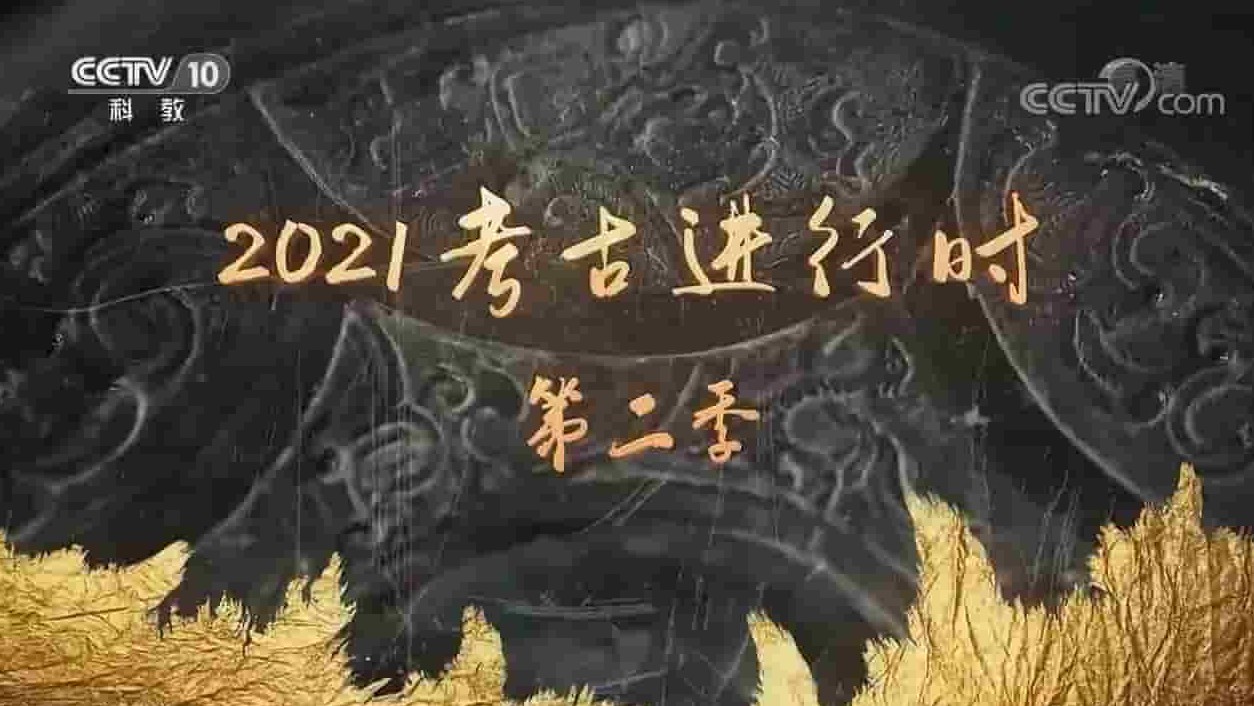 CCTV 10
科教
CCTV.com
2021考古进行时
第二季